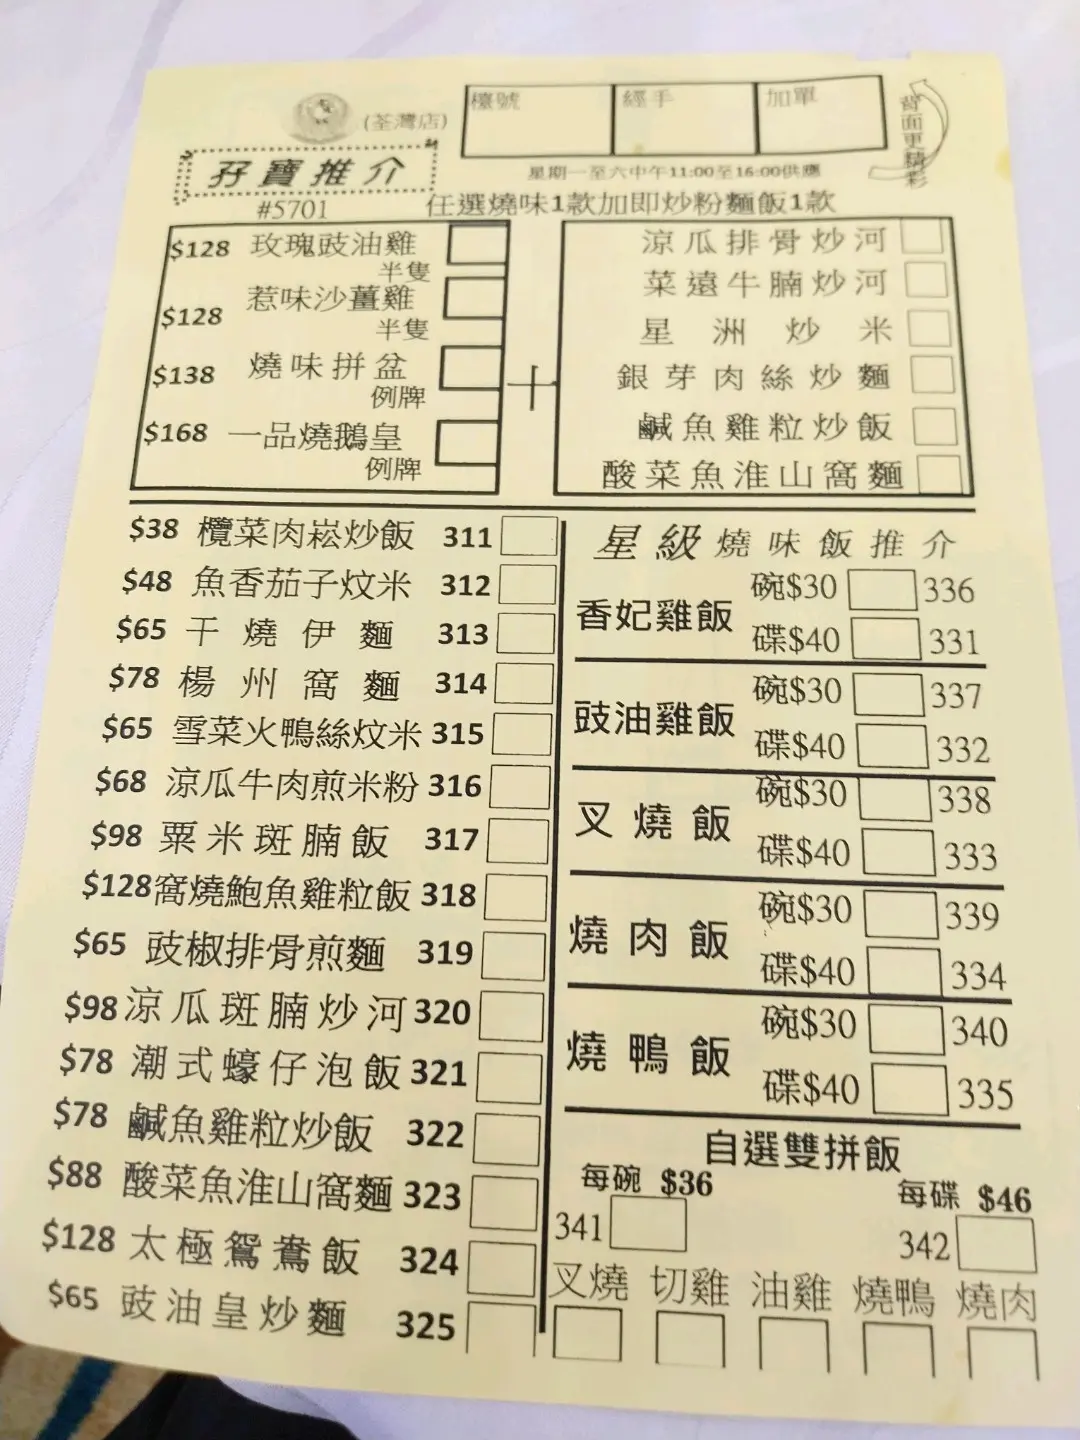 (荃灣店)
檯號 經手 加單
背面更精彩
孖寶推介
#5701
星期一至六中午11:00至16:00供應
任選燒味1款加即炒粉麵飯1款
$128 玫瑰豉油雞
半隻
$128 惹味沙薑雞
半隻
$138 燒味拼盆
例牌
$168 一品燒鵝皇
例牌
+
涼瓜排骨炒河
菜遠牛腩炒河
星洲炒米
銀芽肉絲炒麵
鹹魚雞粒炒飯
酸菜魚淮山窩麵
$38 欖菜肉崧炒飯 311
$48 魚香茄子炆米 312
$65 干燒伊麵 313
$78 楊州窩麵 314
$65 雪菜火鴨絲炆米 315
$68 涼瓜牛肉煎米粉 316
$98 粟米斑腩飯 317
$128 窩燒鮑魚雞粒飯 318
$65 豉椒排骨煎麵 319
$98 涼瓜斑腩炒河 320
$78 潮式蠔仔泡飯 321
$78 鹹魚雞粒炒飯 322
$88 酸菜魚淮山窩麵 323
$128 太極鴛鴦飯 324
$65 豉油皇炒麵 325
星級燒味飯推介
香妃雞飯
碗$30 336
碟$40 331
豉油雞飯
碗$30 337
碟$40 332
叉燒飯
碗$30 338
碟$40 333
燒肉飯
碗$30 339
碟$40 334
燒鴨飯
碗$30 340
碟$40 335
自選雙拼飯
每碗 $36 每碟 $46
341 342
叉燒 切雞 油雞 燒鴨 燒肉